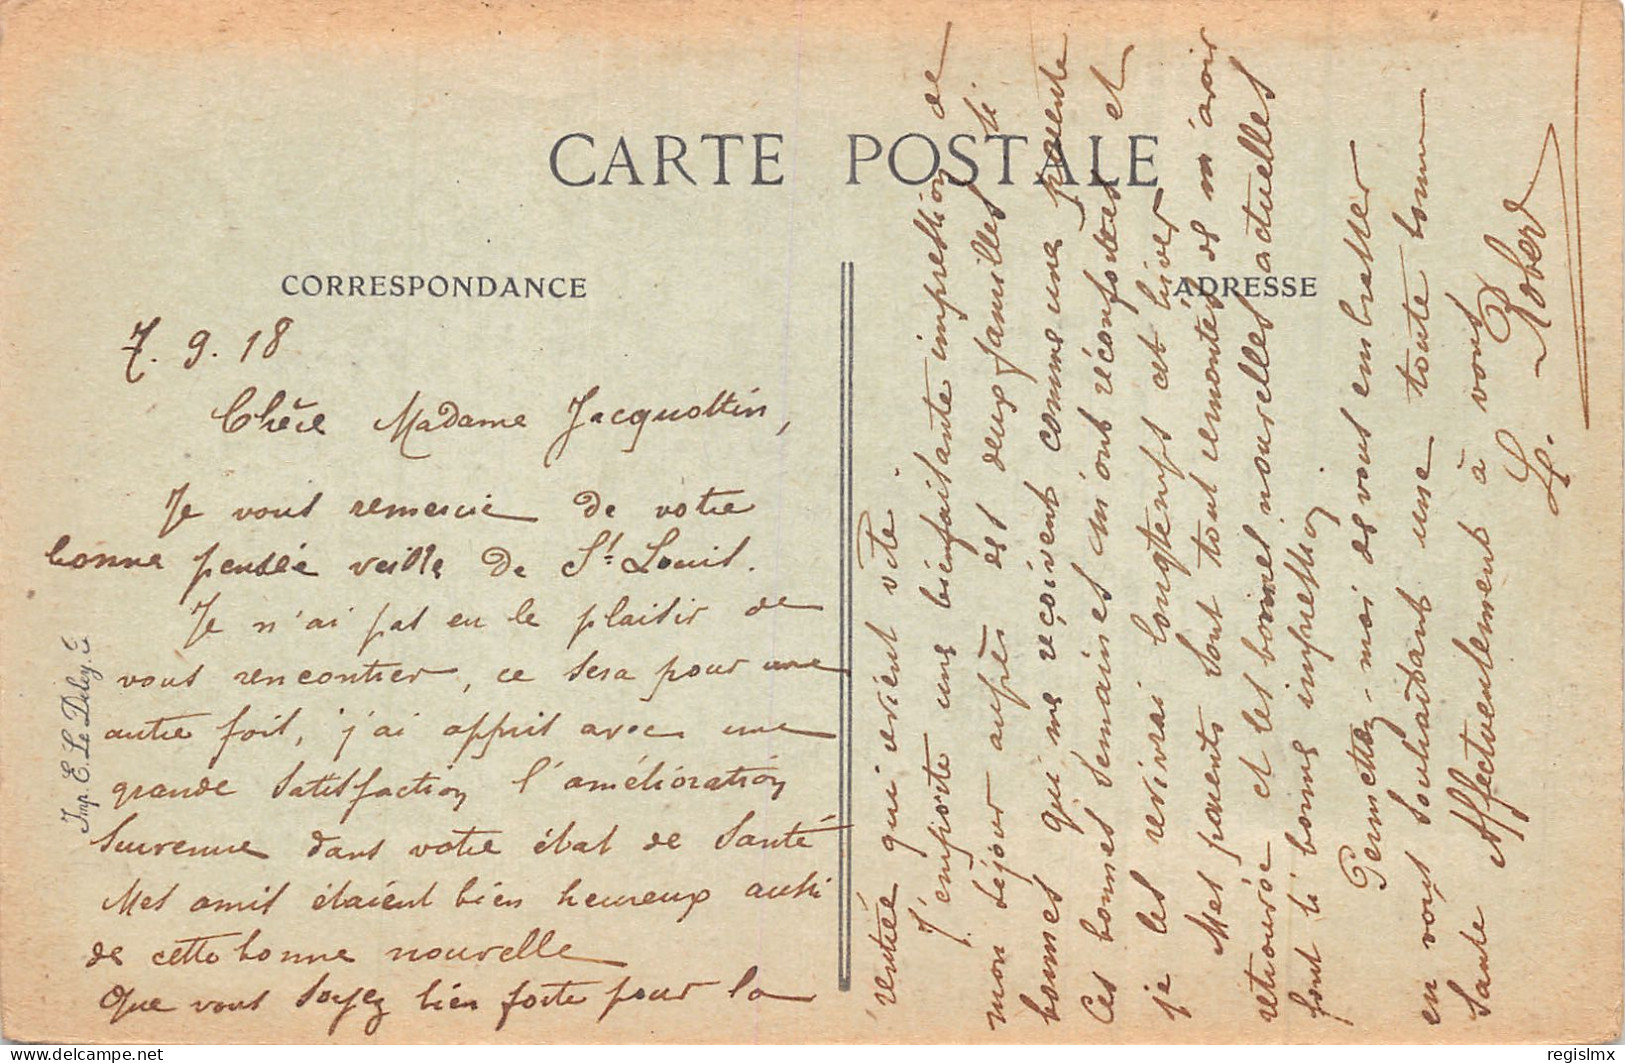 CARTE POSTALE
CORRESPONDANCE
ADRESSE
7. 9. 18
Chère Madame Jacquottin,
Je vous remercie de votre
bonne pensée veille de St. Louis.
Je n'ai pas eu le plaisir de
vous rencontrer, ce sera pour une
autre fois, j'ai appris avec une
grande satisfaction l'amélioration
survenue dans votre état de santé
Mes amis étaient bien heureux aussi
de cette bonne nouvelle
Que vous soyez bien forte pour la
rentrée qui vient vite.
J'emporte une bienfaisante impression de
mon séjour auprès des deux familles si
bonnes qui me reçoivent comme une parente
Ces bonnes semaines m'ont réconfortée et
je les revivrai longtemps cet hiver
Mes parents sont tout remontés de m'avoir
retrouvée et les bonnes nouvelles actuelles
font si bonne impression
Permettez-moi de vous embrasser
en vous souhaitant une toute bonne
santé Affectueusement à vous
L. Robert
Imp. E. Le Deley
regislmx
delcampe.net